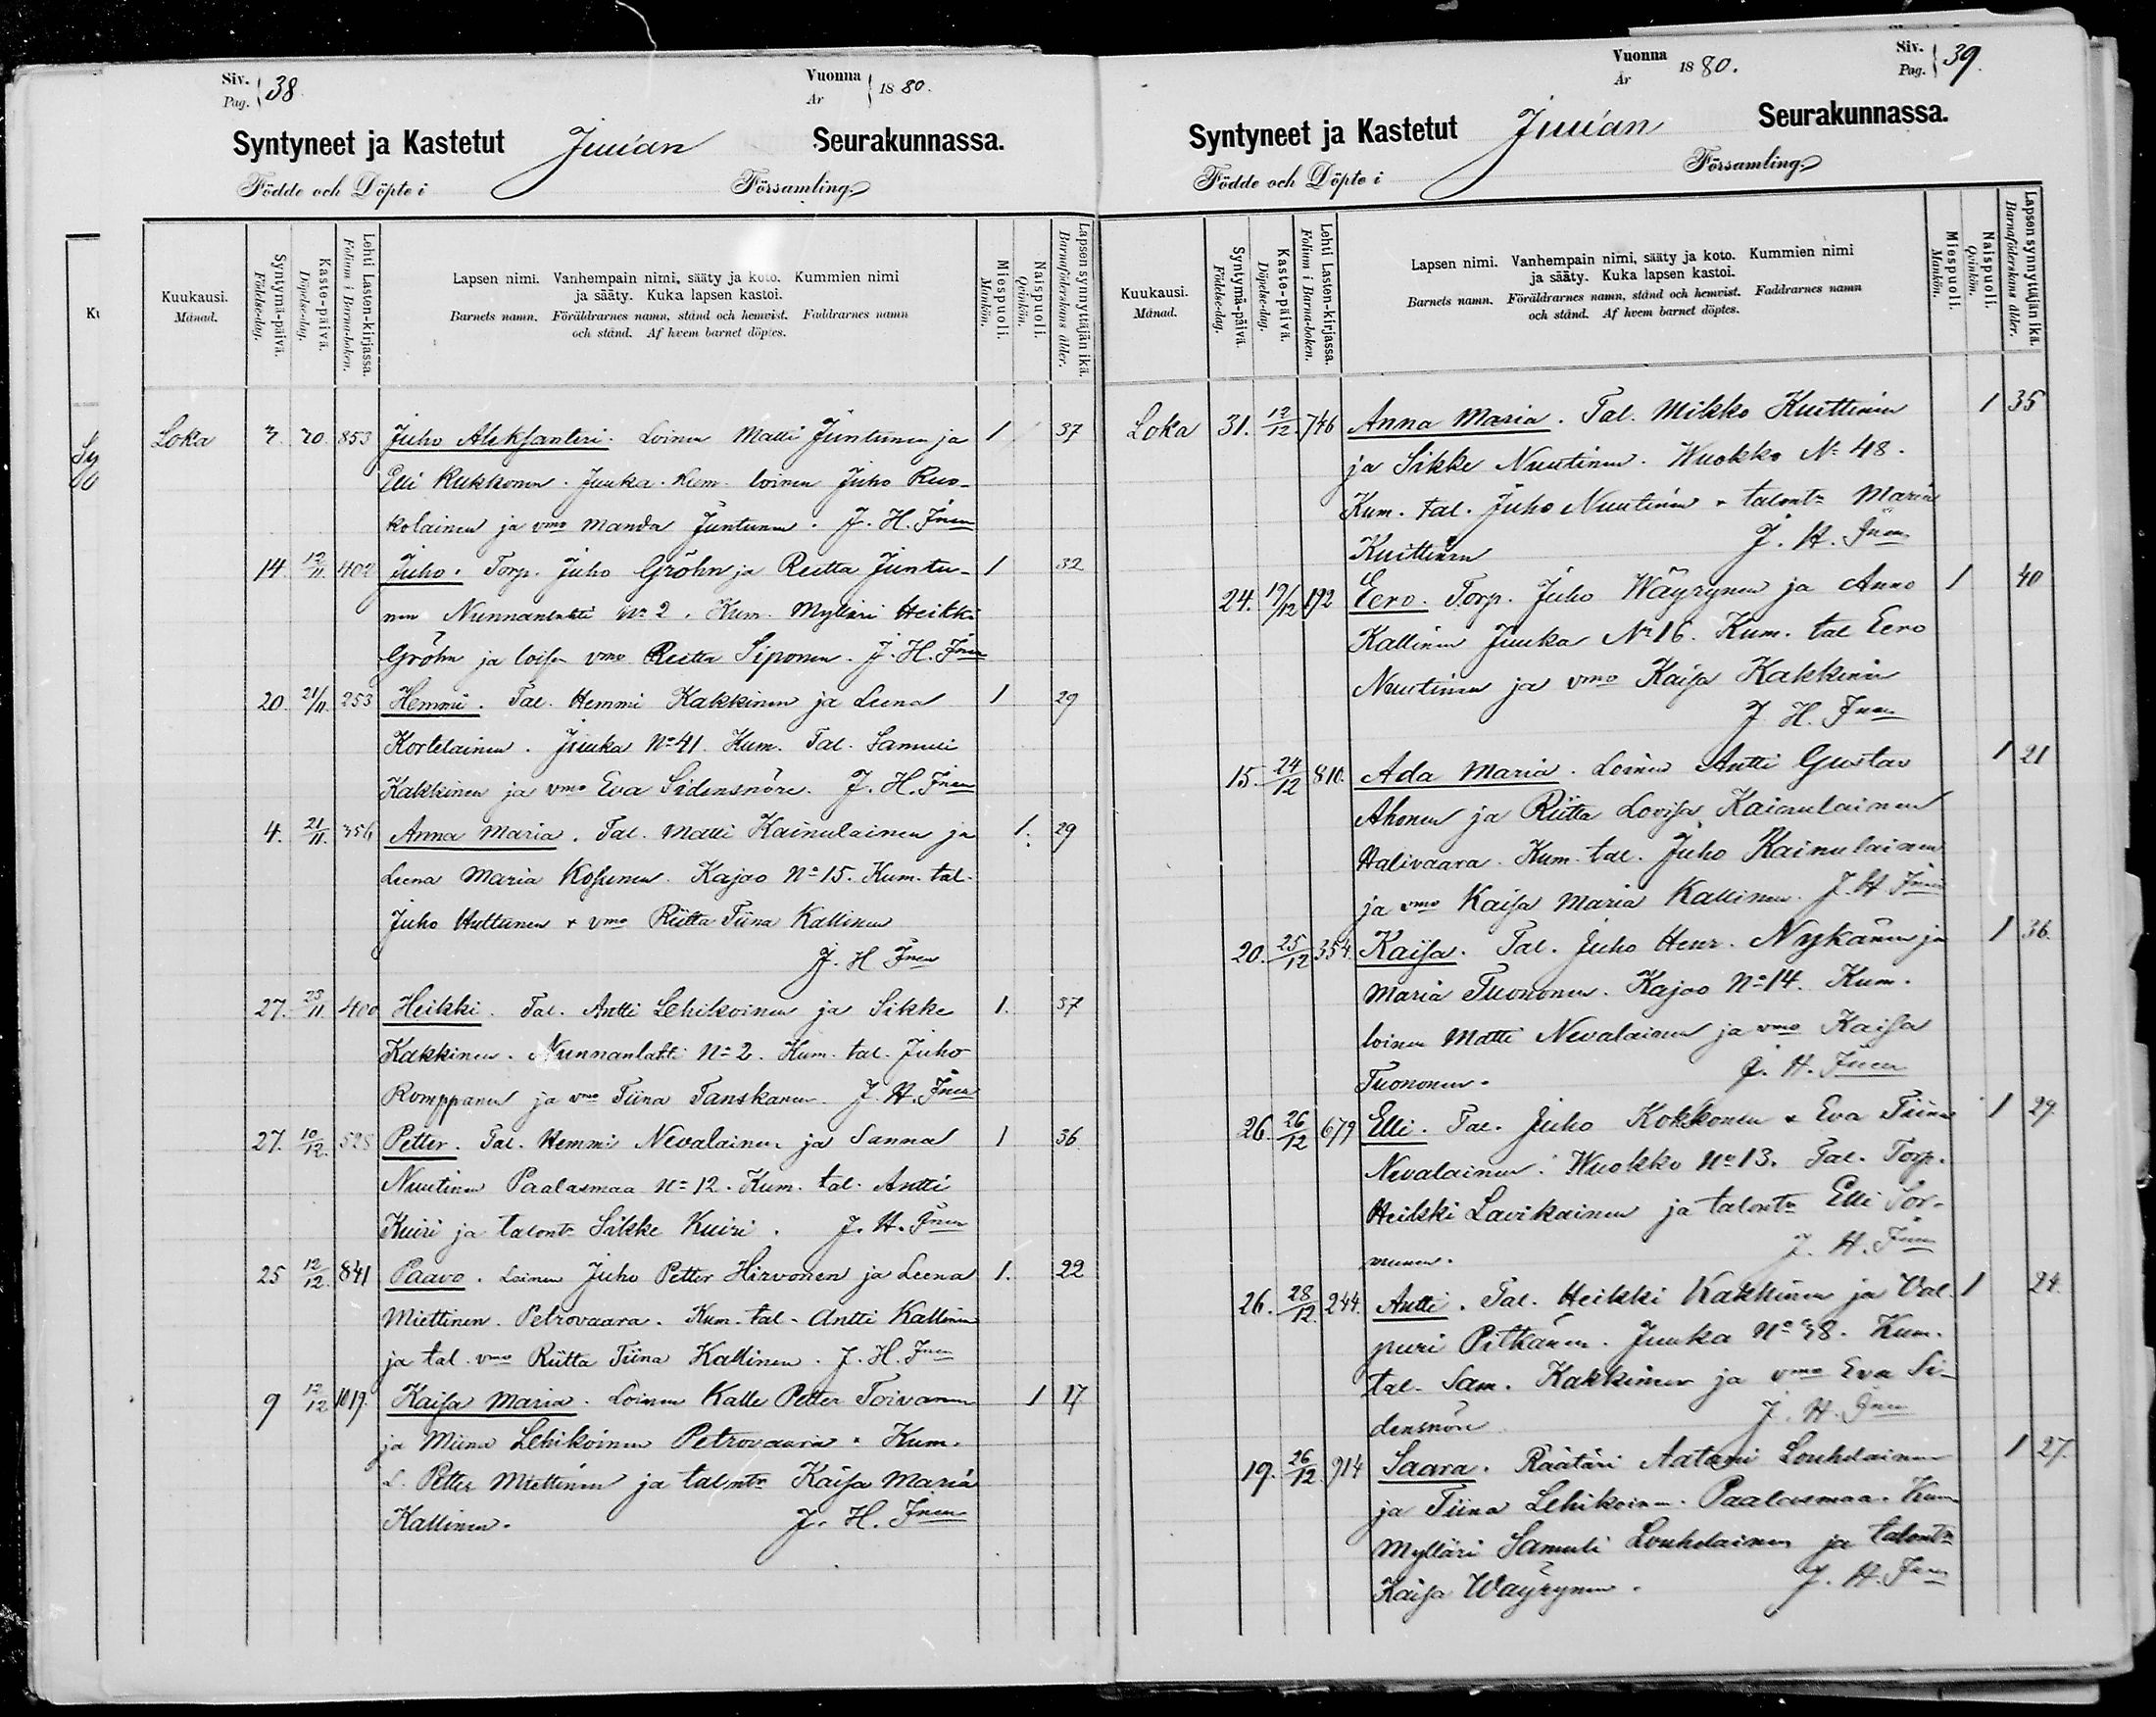 Siv. Pag. 38
Vuonna År 1880.
Syntyneet ja Kastetut Juuan Seurakunnassa.
Födde och Döpte i Församling.
Kuukausi. Månad.
Syntymä-päivä. Födelse-dag.
Kaste-päivä. Döpelse-dag.
Lehti Lasten-kirjassa. Folium i Barna-boken.
Lapsen nimi. Vanhempain nimi, sääty ja koto. Kummien nimi
ja sääty. Kuka lapsen kastoi.
Barnets namn. Föräldrarnes namn, stånd och hemvist. Faddrarnes namn
och stånd. Af hvem barnet döptes.
Miespuoli. Mankön.
Naispuoli. Qvinkön.
Lapsen synnyttäjän ikä. Barnaföderskans ålder.
Loka 20. 853 Juho Aleksanteri. Loinen Matti Juntunen ja 1 37
Elli Rukkonen. Juuka. Kum. loinen Juho Ruo-
kolainen ja vmo Manda Juntunen. J. H.
14. 12/11. 402 Juho. Torp. Juho Gröhn ja Reetta Juntu- 1 32
nen Nunnanlahti No 2. Kum. Mylläri Heikki
Gröhn ja lois. vmo Reetta Siponen. J. H.
20. 21/11. 253 Hemmi. Tal. Hemmi Kakkinen ja Leena 1 29
Kortelainen. Juuka No 41. Kum. Tal. Samuli
Kakkinen ja vmo Eva Sidensnöre. J. H.
4. 21/11. 356 Anna Maria. Tal. Matti Kainulainen ja 1. 29
Leena Maria Kosunen. Kajoo No 15. Kum. tal.
Juho Huttunen & vmo Riitta Tiina Kallinen
J. H.
27. 23/11. 400 Heikki. Tal. Antti Lehikoinen ja Sikke 1. 37
Kakkinen. Nunnanlahti No 2. Kum. tal. Juho
Romppanen ja vmo Tiina Tanskanen. J. H.
27. 10/12. 528 Petter. Tal. Hemmi Nevalainen ja Sanna 1 36.
Nuutinen Paalasmaa No 12. Kum. tal. Antti
Kuiri ja talontr Sikke Kuiri. J. H.
25 12/12. 841 Paavo. Loinen Juho Petter Hirvonen ja Leena 1. 22
Miettinen. Petrovaara. Kum. tal. Antti Kallinen
ja tal. vmo Riitta Tiina Kallinen. J. H.
9 12/12 1019. Kaisa Maria. Loinen Kalle Petter Toivanen 1 17.
ja Miina Lehikoinen Petrovaara. Kum.
L. Petter Miettinen ja talontr Kaisa Maria
Kallinen. J. H.
Vuonna År 1880.
Siv. Pag. 39.
Syntyneet ja Kastetut Juuan Seurakunnassa.
Födde och Döpte i Församling.
Kuukausi. Månad.
Syntymä-päivä. Födelse-dag.
Kaste-päivä. Döpelse-dag.
Lehti Lasten-kirjassa. Folium i Barna-boken.
Lapsen nimi. Vanhempain nimi, sääty ja koto. Kummien nimi
ja sääty. Kuka lapsen kastoi.
Barnets namn. Föräldrarnes namn, stånd och hemvist. Faddrarnes namn
och stånd. Af hvem barnet döptes.
Miespuoli. Mankön.
Naispuoli. Qvinkön.
Lapsen synnyttäjän ikä. Barnaföderskans ålder.
Loka 31. 12/12. 746 Anna Maria. Tal. Mikko Kuittinen 1 35
ja Sikke Nuutinen. Wuokko No 48.
Kum. tal. Juho Nuutinen & talontr Maria
Kuittinen J. H.
24. 19/12 192 Eero. Torp. Juho Wäyrynen ja Anna 1 40
Kallinen Juuka No 16. Kum. tal Eero
Nuutinen ja vmo Kaisa Kakkinen
J. H.
15. 24/12 810. Ada Maria. Loinen Antti Gustav 1 21
Ahonen ja Riitta Lovisa Kainulainen
Halivaara. Kum. tal. Juho Kainulainen
ja vmo Kaisa Maria Kallinen. J. H.
20. 25/12 354. Kaisa. Tal. Juho Henr. Nykänen ja 1 36.
Maria Tuononen. Kajoo No 14. Kum.
loinen Matti Nevalainen ja vmo Kaisa
Tuononen. J. H.
26. 26/12 679 Elli. Tal. Juho Kokkonen & Eva Tiina 1 29.
Nevalainen. Wuokko No 13. Tal. Torp.
Heikki Lavikainen ja talontr Elli Tor-
J. H.
26. 28/12. 244. Antti. Tal. Heikki Kakkinen ja Val- 1 24.
puri Pitkänen. Juuka No 38. Kum.
tal. Sam. Kakkinen ja vmo Eva Si-
densnöre J. H.
19. 26/12. 914 Saara. Räätäri Aatami Louhelainen 1 27.
ja Tiina Lehikoinen. Paalasmaa. Kum
Mylläri Samuli Louhelainen ja talontr
Kaisa Wäyrynen. J. H.